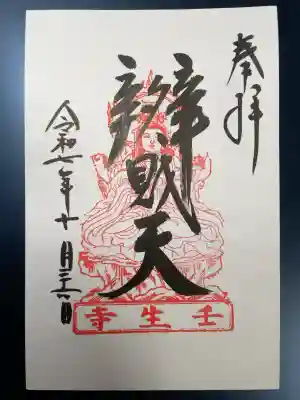 奉拝
辨財天
令和七年十月二十六日
壬生寺